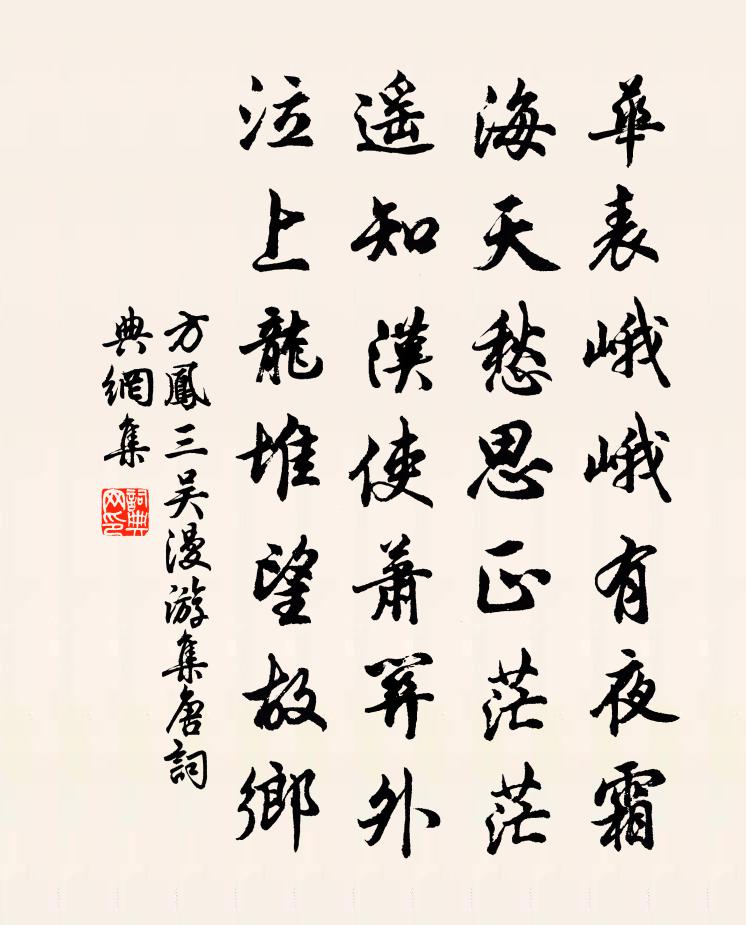 華表峨峨有夜霜
海天愁思正茫茫
遥知漢使蕭關外
泣上龍堆望故鄉
方鳳三吴漫游集唐詞
典網集
詞典網印